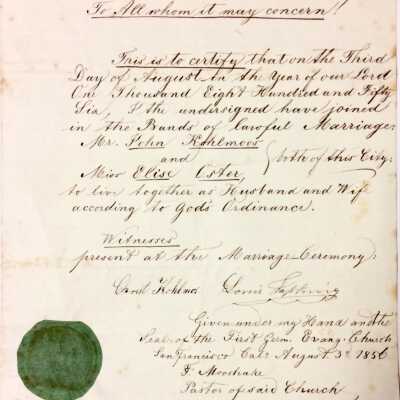 To All whom it may concern!
This is to certify that on the Third
Day of August in the Year of our Lord
One Thousand Eight Hundred and Fifty
Six, I the undersigned have joined
in the Bands of lawful Marriage:
Mr. John Kohlmoos
and
both of this City.
Miss Elise Oster,
to live together as Husband and Wife
according to God's Ordinance.
Witnesses
present at the Marriage Ceremony:
Kohlmos Louis
Given under my Hand and the
Seal of the First Germ. Evang. Church
San Francisco Cal. August 3d 1856
F Mooshake
Pastor of said Church